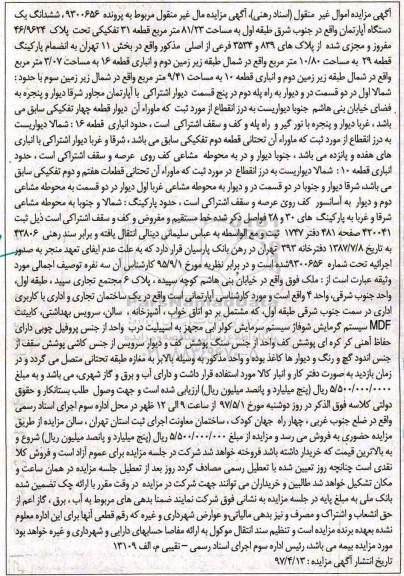 آگهی مزایده اموال غیر منقول (اسناد رهنی)، آگهی مزایده مال غیر منقول مربوط به پرونده ۹۳۰۰۶۵۶، ششدانگ یک
دستگاه آپارتمان واقع در جنوب شرق طبقه اول به مساحت ۸۱/۲۳ متر مربع قطعه ۳۱ تفکیکی تحت پلاک ۴۶/۹۶۲۴
مفروز و مجزی شده از پلاک های ۸۳۹ و ۳۵۳۴ فرعی از اصلی مذکور واقع در بخش ۱۱ تهران به انضمام پارکینگ
قطعه ۲۹ به مساحت ۱۰/۸۰ متر مربع واقع در شمال طبقه زیر زمین دوم و انباری قطعه ۱۶ به مساحت ۳/۰۷ متر مربع
واقع در شمال طبقه زیر زمین دوم و انباری قطعه ۱۰ به مساحت ۹/۴۱ متر مربع واقع در شمال زیر زمین سوم با حدود:
شمالا اول در دو قسمت در و دیوار به راه پله دوم در پنج قسمت دیواری اشتراکی با آپارتمان مجاور شرقا دیوار و پنجره به
فضای خیابان بنی هاشم جنوبا دیواریست به درز انقطاع از مورد ثبت که ماوراء آن دیوار قطعه چهار تفکیکی سابق می
باشد، غربا دیوار و پنجره با نور گیر و راه پله و کف و سقف اشتراکی است، حدود انباری قطعه ۱۶: شمالا دیواریست
به درز انقطاع از مورد ثبت که ماوراء آن تحتانی قطعه دوم تفکیکی سابق می باشد، شرقا و غربا دیوار اشتراکی با انباری
های هفده و پانزده می باشد، جنوبا دیوار و در به محوطه مشاعی کف روی عرصه و سقف اشتراکی است، حدود
انباری قطعه ۱۰: شمالا دیواریست به درز انقطاع در مورد ثبت که ماوراء آن تحتانی قطعات هفتم و دوم تفکیکی سابق
می باشد، شرقا دیوار و جنوبا در دو قسمت در و دیوار به محوطه مشاعی غربا اول دیوار در دو قسمت به محوطه مشاعی
دوم دیوار به آسانسور کف روی عرصه و سقف اشتراکی است، حدود پارکینگ: شمالا و جنوبا به محوطه مشاعی
شرقا و غربا به پارکینگ های ۳۰ و ۲۸ فواصل ذکر شده خط مستقیم و مفروض و کف و سقف اشتراکی است ذیل ثبت
۴۲۰۰۴۱ صفحه ۴۸۱ دفتر ۱۷۴۷ ثبت و مع الواسطه به عباس سلیمانی دینالی انتقال یافته و برابر سند رهنی ۴۳۸۰۶
به تاریخ ۱۳۸۷/۷/۸ دفترخانه ۳۹۳ تهران در رهن بانک پارسیان قرار دارد که به علت عدم ایفای تعهد منجر به صدور
اجرائیه تحت شماره ۹۳۰۰۶۵۶ شده است و در برابر نظریه مورخ ۹۵/۹/۱ کارشناس آن سه نفره توصیف اجمالی مورد
وثیقه عبارت است از: ملک فوق واقع در خیابان بنی هاشم کوچه سپیده، پلاک ۶ مجتمع تجاری سپید، طبقه اول،
واحد جنوب شرقی، واحد ۴ واقع است و مورد کارشناسی آپارتمانی است واقع در یک ساختمان تجاری و اداری با کاربری
اداری در سمت جنوب شرقی طبقه اول، که مشتمل بر دو اتاق خواب، آشپزخانه، سالن، سرویس بهداشتی، کابینت
MDF سیستم گرمایش شوفاژ سیستم سرمایش کولر آبی مجهز به اسپیلیت درب واحد از جنس پروفیل چوبی دارای
حفاظ آهنی کر کره ای پوشش کف واحد از جنس سنگ پوشش کف و دیوار سرویس از جنس کاشی پوشش سقف از
جنس اندود گچ و رنگ و دیوار ها کاغذ بوده و واحد مذکور به وسیله بالابر به مغازه طبقه تحتانی متصل می گردد و در
زمان بازدید به صورت دفتر کار و انبار کالا مورد استفاده قرار داشت و دارای آب و برق و گاز شهری، می باشد و به مبلغ
۵/۵۰۰/۰۰۰/۰۰۰ ریال (پنج میلیارد و پانصد میلیون ریال) ارزیابی شده است و جهت وصول طلب بستانکار و حقوق
دولتی کلاسه فوق الذکر در روز دوشنبه مورخ ۹۷/۵/۱ از ساعت ۹ الی ۱۲ ظهر در محل اداره سوم اجرای اسناد رسمی
واقع در ضلع جنوب غربی، چهار راه جهان کودک، ساختمان معاونت اجرای ثبت استان تهران، سالن مزایده از طریق
مزایده حضوری به فروش می رسد و مزایده از مبلغ ۵/۵۰۰/۰۰۰/۰۰۰ ریال (پنج میلیارد و پانصد میلیون ریال) شروع و
به بالاترین قیمت که خریدار داشته باشد فروخته خواهد شد شرکت در جلسه مزایده برای عموم آزاد است و فروش کلا
نقدی است چنانچه روز تعیین شده با تعطیل رسمی مصادف گردد روز بعد از تعطیل جلسه مزایده در همان ساعت و
مکان تشکیل خواهد شد طالبین و خریداران می توانند جهت شرکت در مزایده در وقت مقرر با ارائه چک تضمین شده
بانک ملی به مبلغ پایه در جلسه مزایده به نشانی فوق شرکت نمایند ضمنا بدهی های مربوط به آب، برق، گاز اعم از
حق انشعاب و اشتراک و مصرف و نیز بدهی مالیاتی و عوارض شهرداری و غیره که رقم قطعی آنها برای این اداره معلوم
نشده بعهده برنده مزایده است و تنظیم سند انتقال موکول به ارائه مفاصا حسابهای دارایی و شهرداری و غیره خواهد بود
مورد مزایده بیمه می باشد، رئیس اداره سوم اجرای اسناد رسمی – نقیبی م، الف ۱۳۱۰۹
تاریخ انتشار آگهی مزایده: ۹۷/۴/۱۳